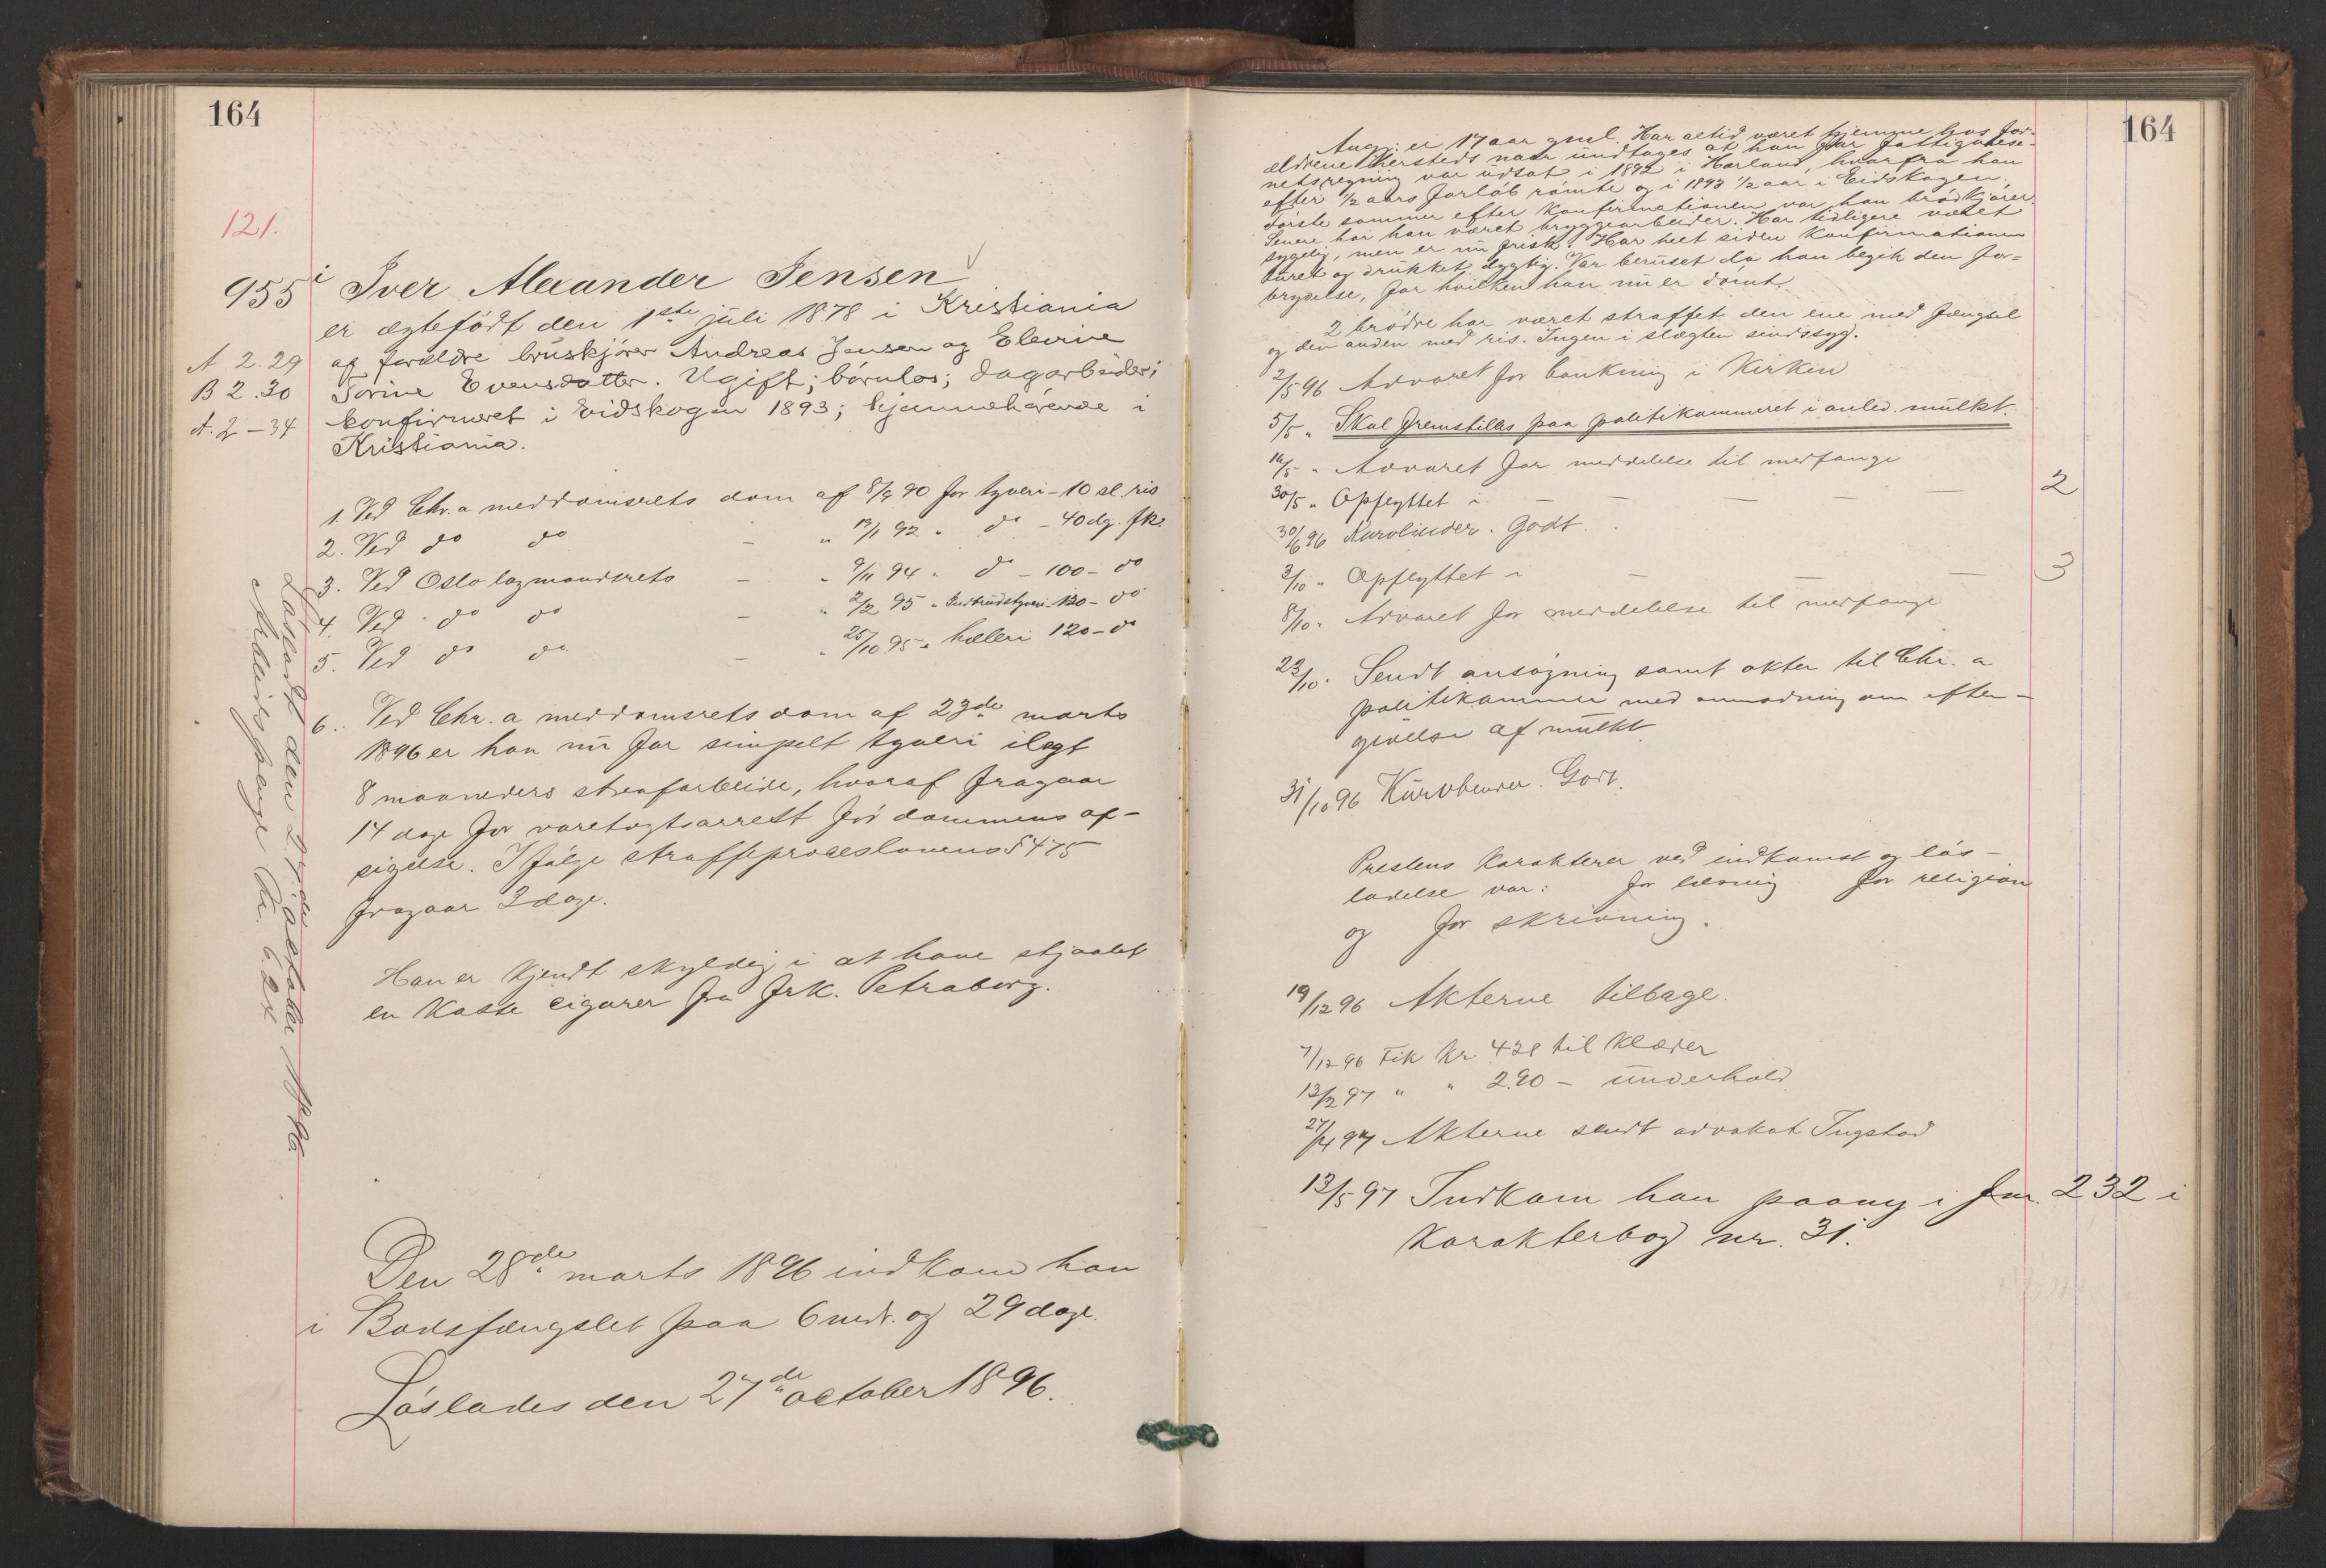 164
121.
955 i Iver Alexander Jensen
er ægtefödt den 1ste juli 1878 i Kristiania
A 2.29 af forældre bruskjörer Andreas Jensen og Elevine
B 2.30 Torine Evensdatter. Ugift; börnlös; dagarbeider;
A. 2-34 konfirmeret i Eidskogen 1893; hjemmehörende i
Kristiania.
1. Ved Chr.a meddomsrets dom af 8/9 90 for tyveri - 10 sl. ris
2. Ved do do - " 19/1 92 " do - 40 dg. fk.
3. Ved Oslo lagmandsrets - " 9/11 94 " do - 100 - do
4. Ved do do - " 2/2 95 " Indbrudstyveri - 120 - do
5. Ved do do - " 25/10 95 " hæleri 120 - do
6. Ved Chr.a meddomsrets dom af 23de marts
1896 er han nu for simpelt tyveri ilagt
8 maaneders strafarbeide, hvoraf fragaar
14 dage for varetægtsarrest för dommens af-
sigelse. I fölge straffeproceslovens § 475
fragaar 3 dage.
Han er kjendt skyldig i at have stjaalet
en kasse cigarer fra frk. Petraborg.
Den 28de marts 1896 indkom han
i Bodsfængslet paa 6 mdr. og 29 dage.
Löslades den 27de october 1896.
Lösladt den 27de october 1896.
Arbeidspenge Kr. 6.24
164
Angj. er 17 aar gml. Har altid været hjemme hos for-
ældrene dersteds naar undtages at han for fattigvæse-
nets regning var udsat i 1892 i Hærland, hvorfra han
efter 1/2 aars forlöb römte og i 1893 1/2 aar i Eidskogen.
Förste sommer efter konfirmationen var han brödkjörer.
Senere har han været bryggearbeider. Har tidligere været
sygelig, men er nu frisk. Har helt siden konfirmationen
turet og drukket dygtig. Var beruset da han begik den for-
brydelse, for hvilken han nu er dömt.
2 brödre har været straffet den ene med fængsel
og den anden med ris. Ingen i slægten sindssyg.
2/5 96 Advaret for bankning i kirken
5/5 " Skal fremstilles paa politikammeret i anled. mulkt.
16/5 " Advaret for meddelelse til medfange
30/5 " Opflyttet i - - - - - 2
30/6 96 Kurvbinder. Godt.
3/10 " Opflyttet i - - - 3
8/10 " Advaret for meddelelse til medfange
23/10 " Sendt ansögning samt akter til Chr. a
politikammer med anmodning om efter-
givelse af mulkt
31/10 96 Kurvbinder. Godt.
Prestens karakterer ved indkomst og lös-
ladelse var: for læsning for religion
og for skrivning.
19/12 96 Akterne tilbage.
7/12 96 Fik kr 428 til klæder
13/2 97 " " 2.90 - underhold
27/4 97 Akterne sendt advokat Tugstad
13/5 97 Indkom han paany i fnr. 232 i
karakterbog nr. 31.